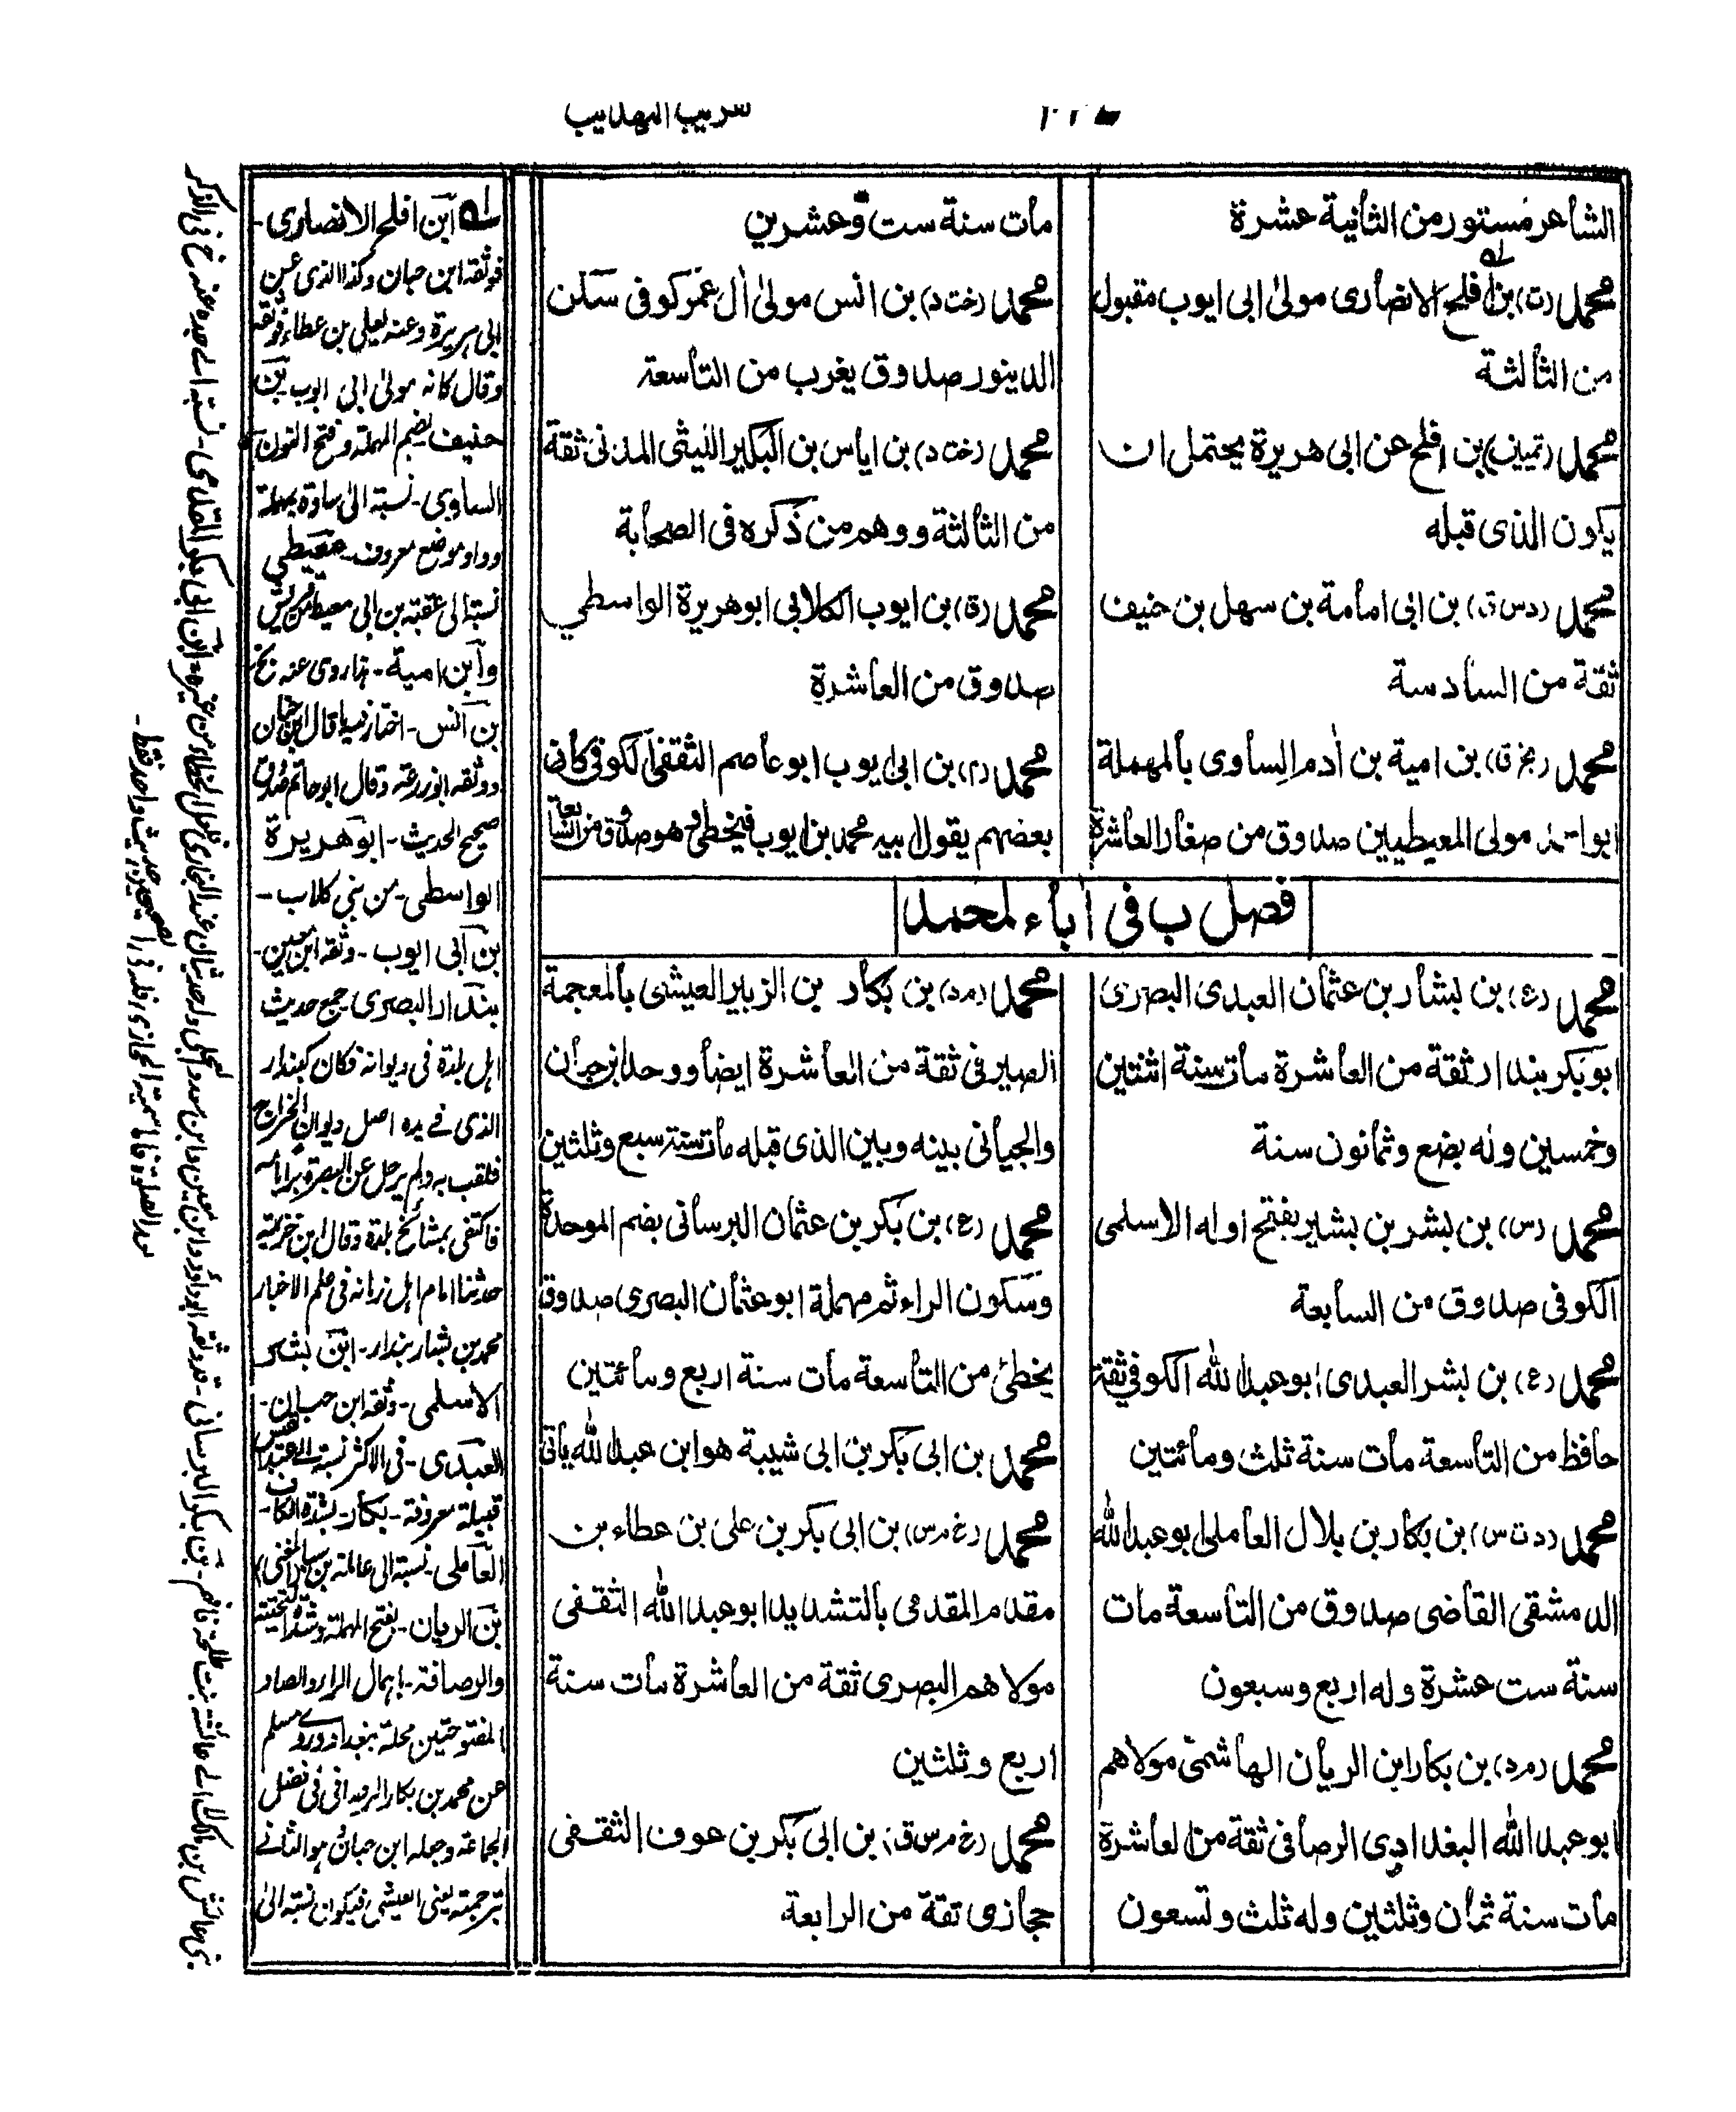 تقريب التهذيب
الشاعر مستور من الثانية عشرة
محمد (ت) بن افلح الانصارى مولى ابى ايوب مقبول
من الثالثة
محمد (تمييز) بن افلح عن ابى هريرة يحتمل ان
يكون الذى قبله
محمد (د س ق) بن ابى امامة بن سهل بن حنيف
ثقة من السادسة
محمد (بخ ق) بن امية بن أدم الساوى بالمهملة
ابو احمد مولى المعيطيين صدوق من صغار العاشرة
مات سنة ست وعشرين
محمد (خت د) بن انس مولى أل عمر كوفى سكن
الدينور صدوق يغرب من التاسعة
محمد (خت د) بن اياس بن البكير الليثى المدنى ثقة
من الثالثة ووهم من ذكره فى الصحابة
محمد (ق) بن ايوب الكلابى ابو هريرة الواسطي
صدوق من العاشرة
محمد (م) بن ابى ايوب ابو عاصم الثقفى الكوفى كان
بعضهم يقول ابيه محمد بن ايوب فيخطئ وهو صدوق من السابعة
فصل ب فى أباء لمحمد
محمد (ع) بن بشار بن عثمان العبدى البصرى
ابو بكر بندار ثقة من العاشرة مات سنة اثنتين
وخمسين وله بضع وثمانون سنة
محمد (س) بن بشر بن بشير بفتح اوله الاسلمى
الكوفى صدوق من السابعة
محمد (ع) بن بشر العبدى ابو عبد الله الكوفى ثقة
حافظ من التاسعة مات سنة ثلث ومائتين
محمد (د ت س) بن بكار بن بلال العاملى ابو عبد الله
الدمشقى القاضى صدوق من التاسعة مات
سنة ست عشرة وله اربع وسبعون
محمد (م د) بن بكار ابن الريان الهاشمى مولاهم
ابو عبد الله البغدادى الرصافى ثقة من العاشرة
مات سنة ثمان وثلثين وله ثلث وتسعون
محمد (م د) بن بكار بن الزبير العيشى بالمعجمة
الصيرفى ثقة من العاشرة ايضا ووحد ابن حبان
والجيانى بينه وبين الذى قبله مات سنة سبع وثلثين
محمد (ع) بن بكر بن عثمان البرسانى بضم الموحدة
وسكون الراء ثم مهملة ابو عثمان البصرى صدوق
يخطئ من التاسعة مات سنة اربع ومائتين
محمد بن ابى بكر بن ابى شيبة هو ابن عبد الله يأتى
محمد (خ م س) بن ابى بكر بن على بن عطاء بن
مقدم المقدمى بالتشديد ابو عبد الله الثقفى
مولاهم البصرى ثقة من العاشرة مات سنة
اربع وثلثين
محمد (خ م س ق) بن ابى بكر بن عوف الثقفى
حجازى ثقة من الرابعة
له ابن افلح الانصارى -
فوثقه ابن حبان وكذا الذى عن
ابى هريرة وعنه يعلى بن عطاء فوثقه
وقال كانه مولى ابى ايوب - بن
حنيف بضم المهملة وفتح النون -
الساوى - نسبة الى ساوة بمهملة
وواو موضع معروف - معيطى
نسبة الى عقبة بن ابى معيط من قريش
وابن امية - ہذا روى عنه بخ
بن انس - قال ابن حبان
ووثقه ابو زرعة وقال ابو حاتم صدوق
صحيح الحديث - ابو هريرة
الواسطى - من بنى كلاب -
بن ابى ايوب - وثقه ابن معين -
بندار البصرى - جمع حديث
اہل بلدة فى ديوانه فكان كبندار
الذى فے يده اصل ديوان الخراج
فلقب به ولم يرحل عن البصرة برا بامه
فاكتفى بمشائخ بلدة وقال ابن خزيمة
حدثنا امام اہل زمانه فى علم الاخبار
محمد بن بشار بندار - ابن بشر
الاسلمى - وثقه ابن حبان -
العبدى - فى الاكثر نسبة الے عبد القيس
قبيلة معروفة - بكار - بشدة الكاف -
العاملى - نسبة الى عاملة بن سبا (مغنى)
بن الريان - بفتح المهملة وشدة التحتية
والرصافة - باہمال الراء والصاد
المفتوحتين محلة ببغداد وروے مسلم
عن محمد بن بكار فى فضل
الجماعة وجعله ابن حبان ہو الثانے
ترجمته يعنى العيشى فيكون نسبة الى
بنى عائش بن مالك الے عائشة بنت طلحة فافہم - بن بكر البرسانى - قد وثقه ابو داؤد وابن معين وابن سعد والعجلى